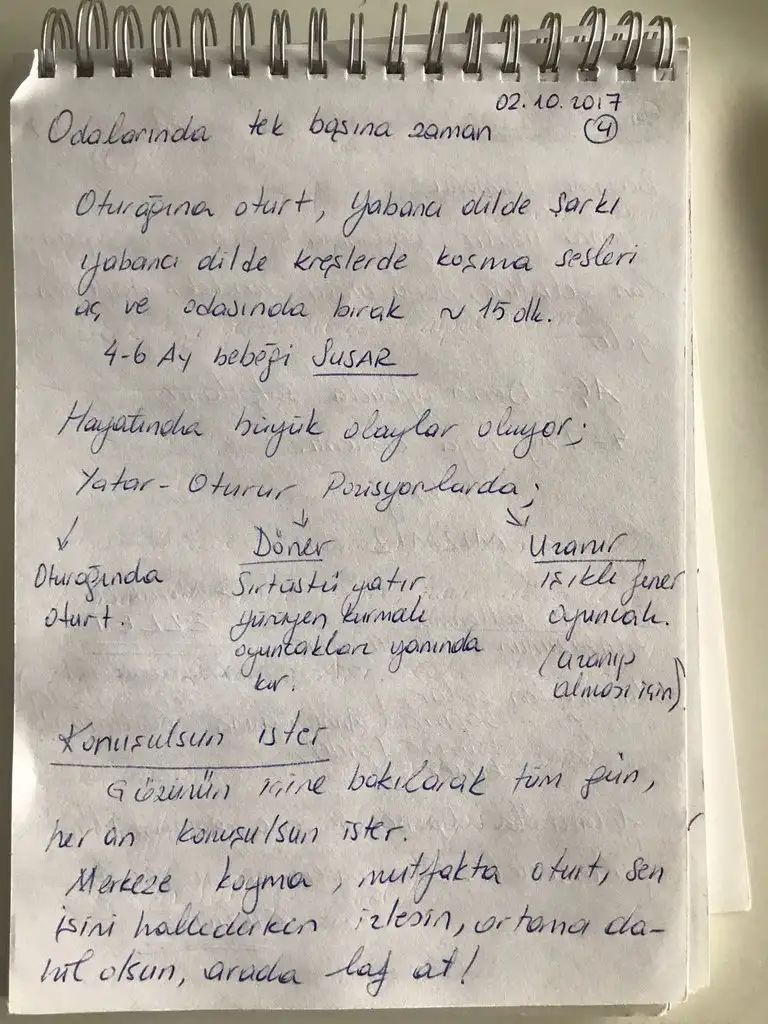 02.10.2017
Odalarında tek başına zaman
4
Oturağına oturt, Yabancı dilde şarkı
yabancı dilde kreşlerde koşma sesleri
aç ve odasında bırak ~ 15 dk.
4-6 Ay bebeği SUSAR
Hayatında büyük olaylar oluyor;
Yatar - Oturur Pozisyonlarda;
Oturağında
oturt.
Döner
Sırtüstü yatır,
yürüyen kurmalı
oyuncakları yanında
kur.
Uzanır
ışıklı fener
oyuncak.
(uzanıp
alması için)
Konuşulsun ister
Gözünün içine bakılarak tüm gün,
her an konuşulsun ister.
Merkeze koyma, mutfakta oturt, sen
işini hallederken izlesin, ortama da-
hil olsun, arada laf at!